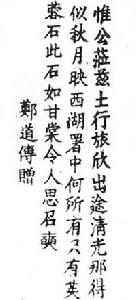 惟公莅茲土行旅欣出途清光那得
似秋月映西湖署中何所有只有英
蓉石此石如甘棠令人思召奭
鄭道傳贈